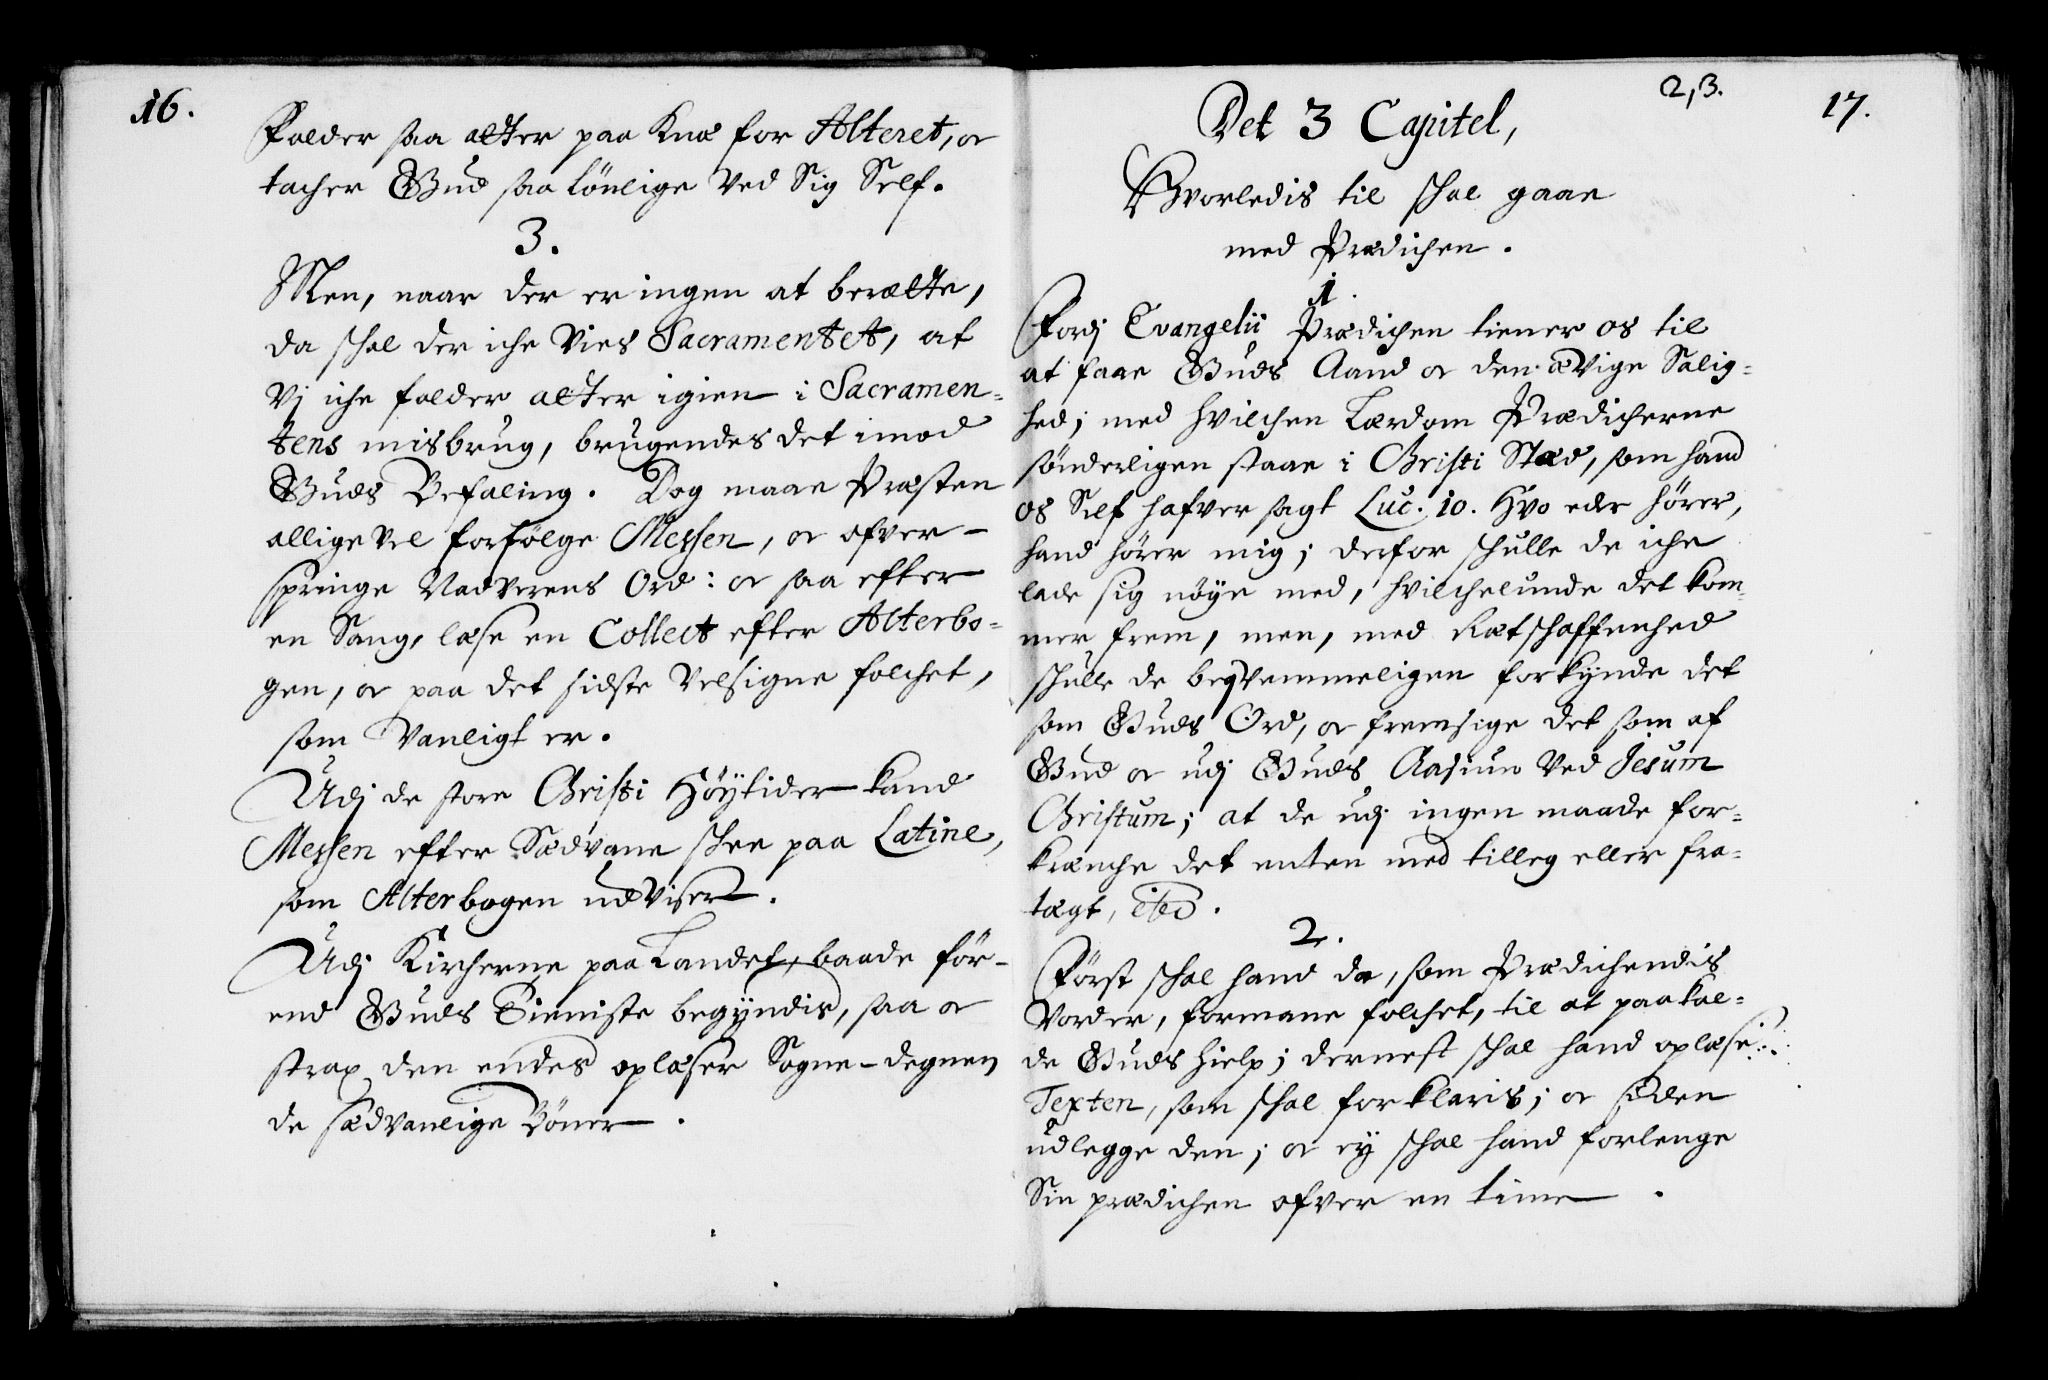 16.
Falder saa atter paa Knæ for Alteret, oc
tacher Gud saa lönlige ved Sig Self.
3.
Men, naar der er ingen at berætte,
da schal der iche Vies Sacramentet, at
Vj iche falder atter igien i Sacramen-
tens misbrug, brugendes det imod
Guds Befaling. Dog maae Præsten
alligevel forfölge Messen, oc ofver-
springe Nadverens Ord: oc saa efter
en Sang, læse en Collect efter Alterbo-
gen, oc paa det sidste Velsigne folchet,
som Vanligt er.
Udj de store Christi Höytider kand
Messen efter Sædvane schee paa Latine,
som Alterbogen udViser.
Udj Kircherne paa Landet, baade för-
end Guds Tieniste begyndis, saa oc
strax den endes oplæser Sogne-degnen
de sædvanlige Böner.
2,3.
17.
Det 3 Capitel,
Hvorledis til schal gaae
med Prædichen.
1.
Fordj Evangelii Prædichen tiener os til
at faae Guds Aand oc den æVige Salig-
hed; med hvilchen Lærdom Prædicherne
sønderligen staae i Christi Stæd, som hand
os Self hafver sagt Luc. 10. Hvo eder hører,
hand hører mig; derfor schulle de iche
lade sig nøye med, hvilchelunde det kom-
mer frem, men, med Rætschaffenhed
schulle de beqvemmeligen forkynde det
som Guds Ord, oc fremsige det som af
Gud oc udj Guds Aasiun Ved Jesum
Christum; at de udj ingen maade for-
krænche det enten med tilleg eller fra-
tægt, etc.
2.
Först schal hand da, som Prædichendis
Vorder, formane folchet, til at paakal-
de Guds hielp; dernest schal hand oplæse
Texten, som schal forklaris; oc siden
udlegge den; oc ey schal hand forlenge
Sin prædichen ofver en time.